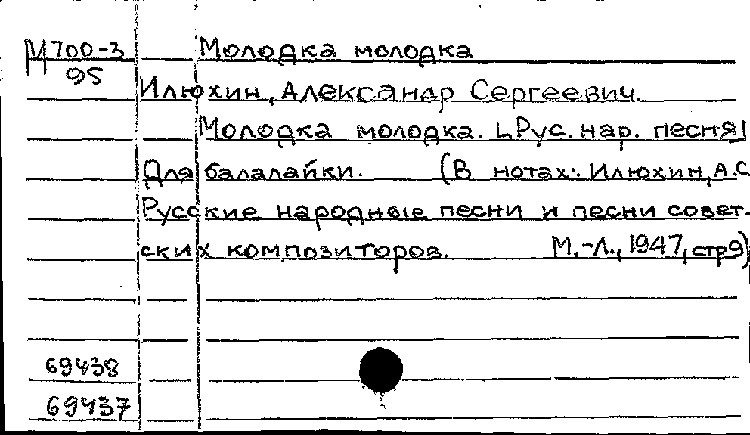 М700-3 Молодка молодка
95
Илюхин, Александр Сергеевич.
Молодка молодка. [Рус. нар. песня]
Для балалайки. (В нотах: Илюхин, А.С
Русские народные песни и песни совет-
ских композиторов. М.-Л., 1947, стр9)
69438
69437